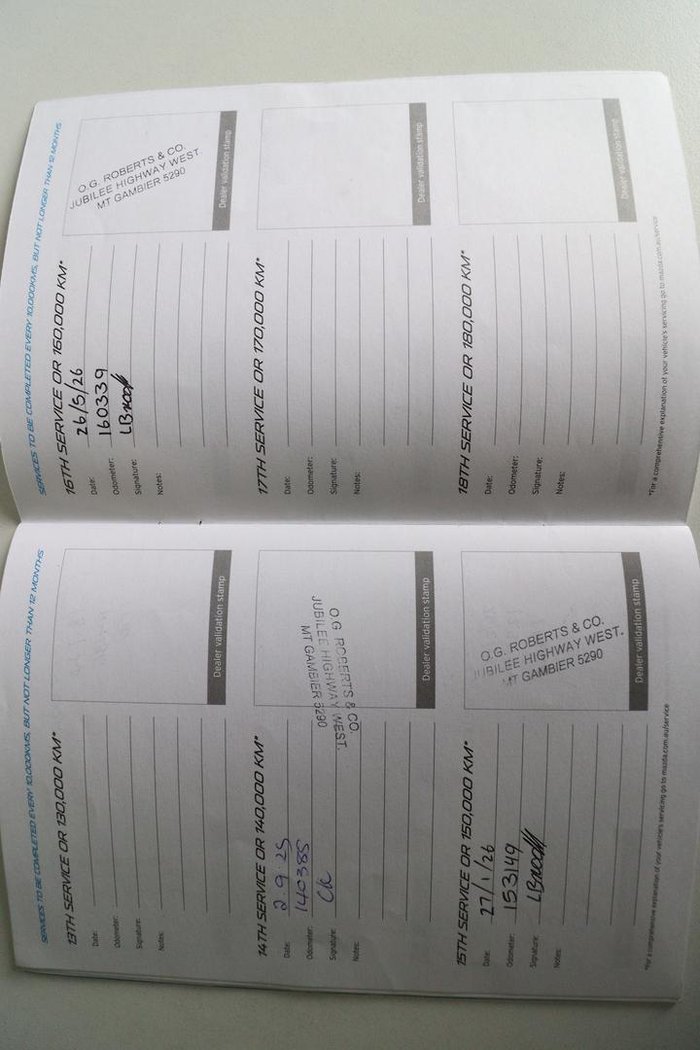 SERVICES TO BE COMPLETED EVERY 10,000KMS, BUT NOT LONGER THAN 12 MONTHS
13TH SERVICE OR 130,000 KM*
Date:
Odometer:
Signature:
Notes:
Dealer validation stamp
14TH SERVICE OR 140,000 KM*
Date: 2 9 25
Odometer: 140385
Signature: CK
Notes:
O.G. ROBERTS & CO.
JUBILEE HIGHWAY WEST.
MT GAMBIER 5290
Dealer validation stamp
15TH SERVICE OR 150,000 KM*
Date: 27/1/26
Odometer: 153149
Signature:
Notes:
O.G. ROBERTS & CO.
JUBILEE HIGHWAY WEST.
MT GAMBIER 5290
Dealer validation stamp
*For a comprehensive explanation of your vehicle's servicing go to mazda.com.au/service
SERVICES TO BE COMPLETED EVERY 10,000KMS, BUT NOT LONGER THAN 12 MONTHS
16TH SERVICE OR 160,000 KM*
Date: 26/5/26
Odometer: 160339
Signature:
Notes:
O.G. ROBERTS & CO.
JUBILEE HIGHWAY WEST.
MT GAMBIER 5290
Dealer validation stamp
17TH SERVICE OR 170,000 KM*
Date:
Odometer:
Signature:
Notes:
Dealer validation stamp
18TH SERVICE OR 180,000 KM*
Date:
Odometer:
Signature:
Notes:
Dealer validation stamp
*For a comprehensive explanation of your vehicle's servicing go to mazda.com.au/service